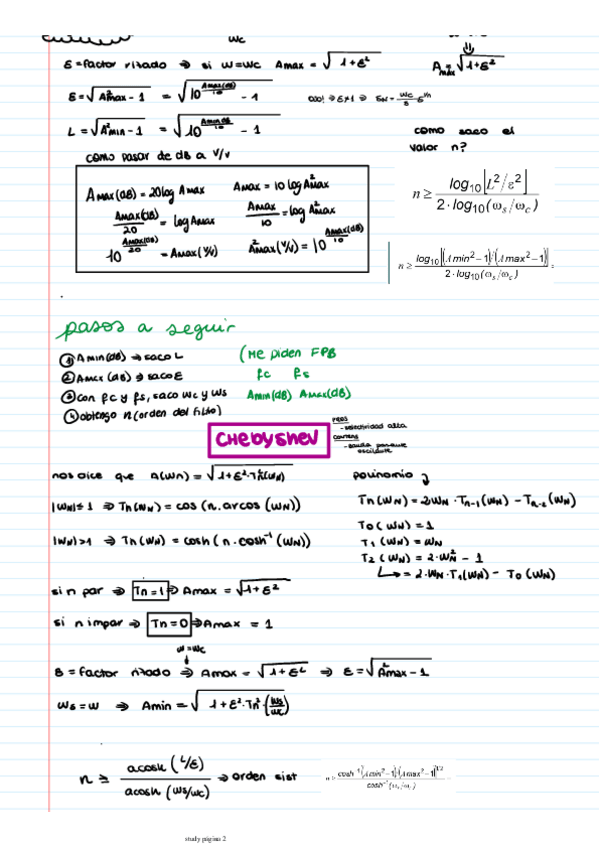 wc
ε = factor rizado ⇒ si w=wc Amax = √1+ε²
Amax = √1+ε²
ε = √A²max - 1 = √10^(Amax(dB)/10) - 1
L = √A²min - 1 = √10^(Amin(dB)/10) - 1
como pasar de dB a V/V
como saco el
valor n?
Amax(dB) = 20log Amax Amax = 10 log A²max
Amax(dB)/20 = log Amax Amax/10 = log A²max
10^(Amax(dB)/20) = Amax(V/V) A²max(V/V) = 10^(Amax(dB)/10)
n ≥ log10[L²/ε²] / 2·log10(ωs/ωc)
n ≥ log10[(Amin²-1)/(Amax²-1)] / 2·log10(ωs/ωc)
pasos a seguir
① Amin(dB) ⇒ saco L
② Amax(dB) ⇒ saco ε
③ con fc y fs, saco wc y ws
④ obtengo n (orden del filtro)
(Me piden FPB
fc fs
Amin(dB) Amax(dB)
CHebyshev
PROS
- selectividad alta
CONTRAS
- banda pasante
oscilante
nos dice que A(wn) = √1+ε²·Tn²(wn)
|wn|≤1 ⇒ Tn(wn) = cos(n.arcos(wn))
|wn|>1 ⇒ Tn(wn) = cosh(n·cosh⁻¹(wn))
polinomio
Tn(wn) = 2wn·Tn-1(wn) - Tn-2(wn)
T0(wn) = 1
T1(wn) = wn
T2(wn) = 2·wn² - 1
↳ = 2·wn·T1(wn) - T0(wn)
si n par ⇒ Tn=1 ⇒ Amax = √1+ε²
si n impar ⇒ Tn=0 ⇒ Amax = 1
w=wc
ε = factor rizado ⇒ Amax = √1+ε² ⇒ ε = √A²max - 1
ws = w ⇒ Amin = √1+ε²·Tn²(ws/wc)
n ≥ acosh(L/ε) / acosh(ws/wc) → orden sist
n ≥ cosh⁻¹[(Amin²-1)/(Amax²-1)]^1/2 / cosh⁻¹(ωs/ωc)
study página 2